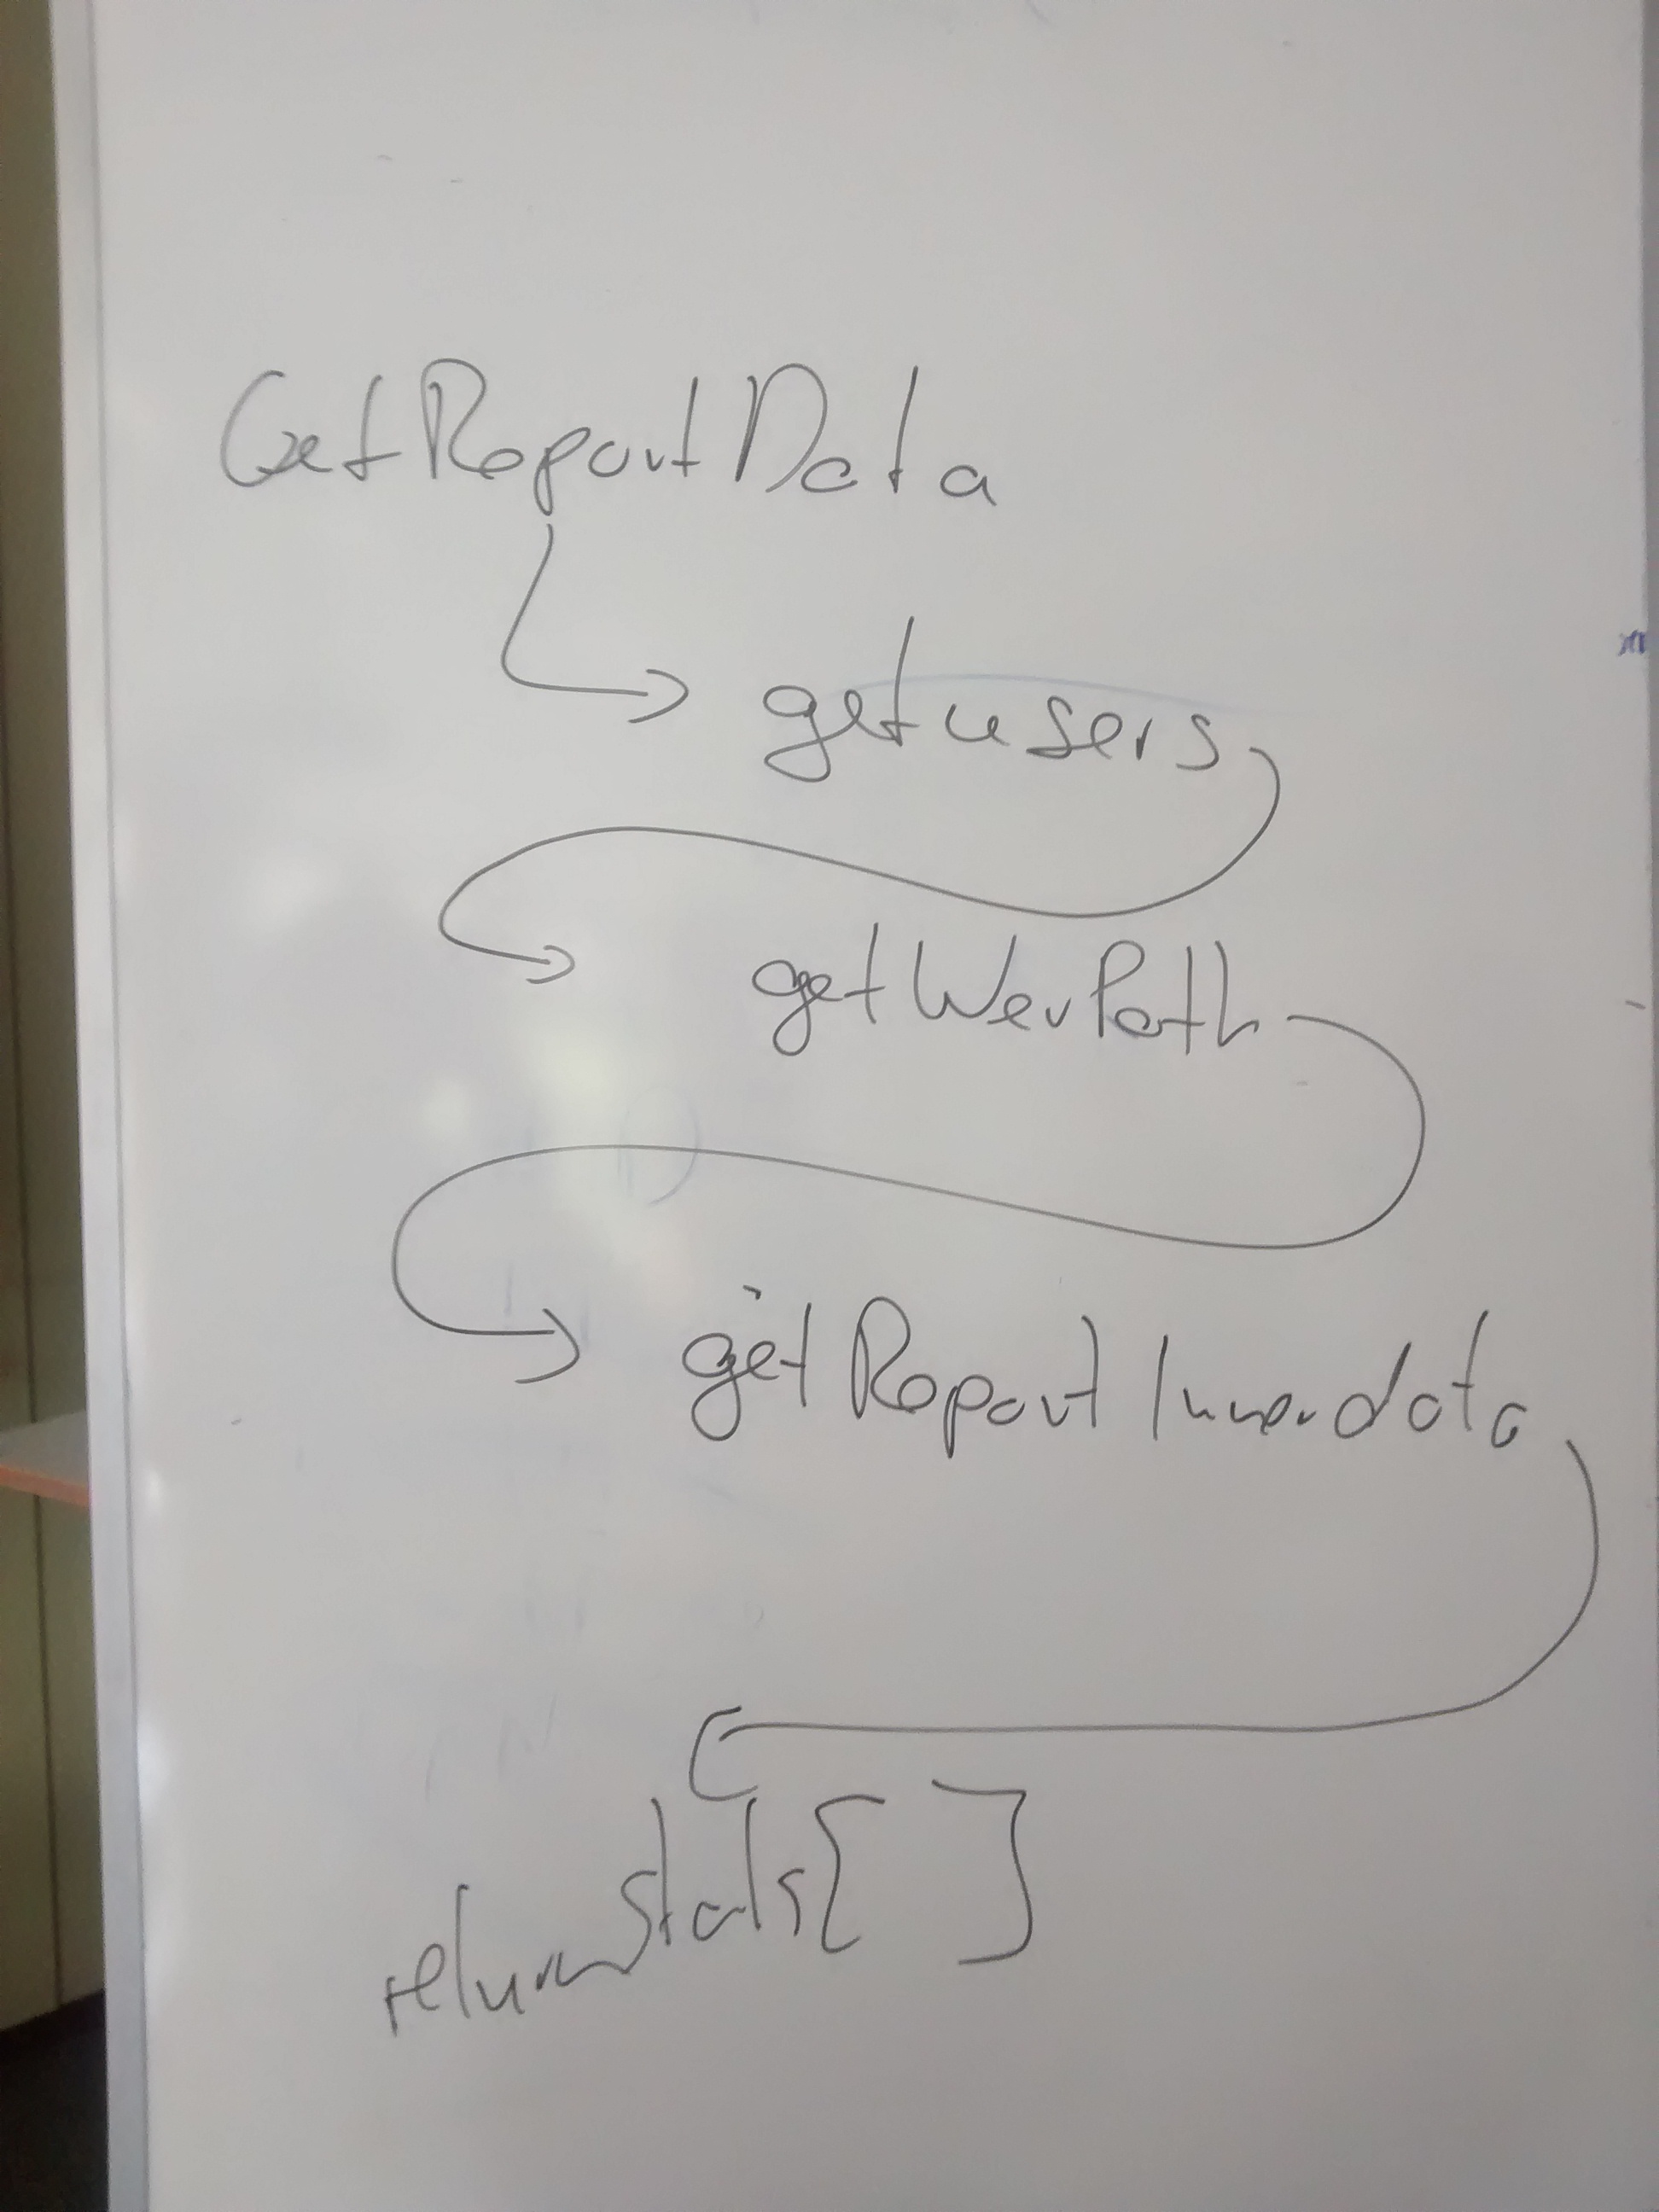 GetReportData
getusers
getWerPath
getReportInnerdata
return stats[ ]